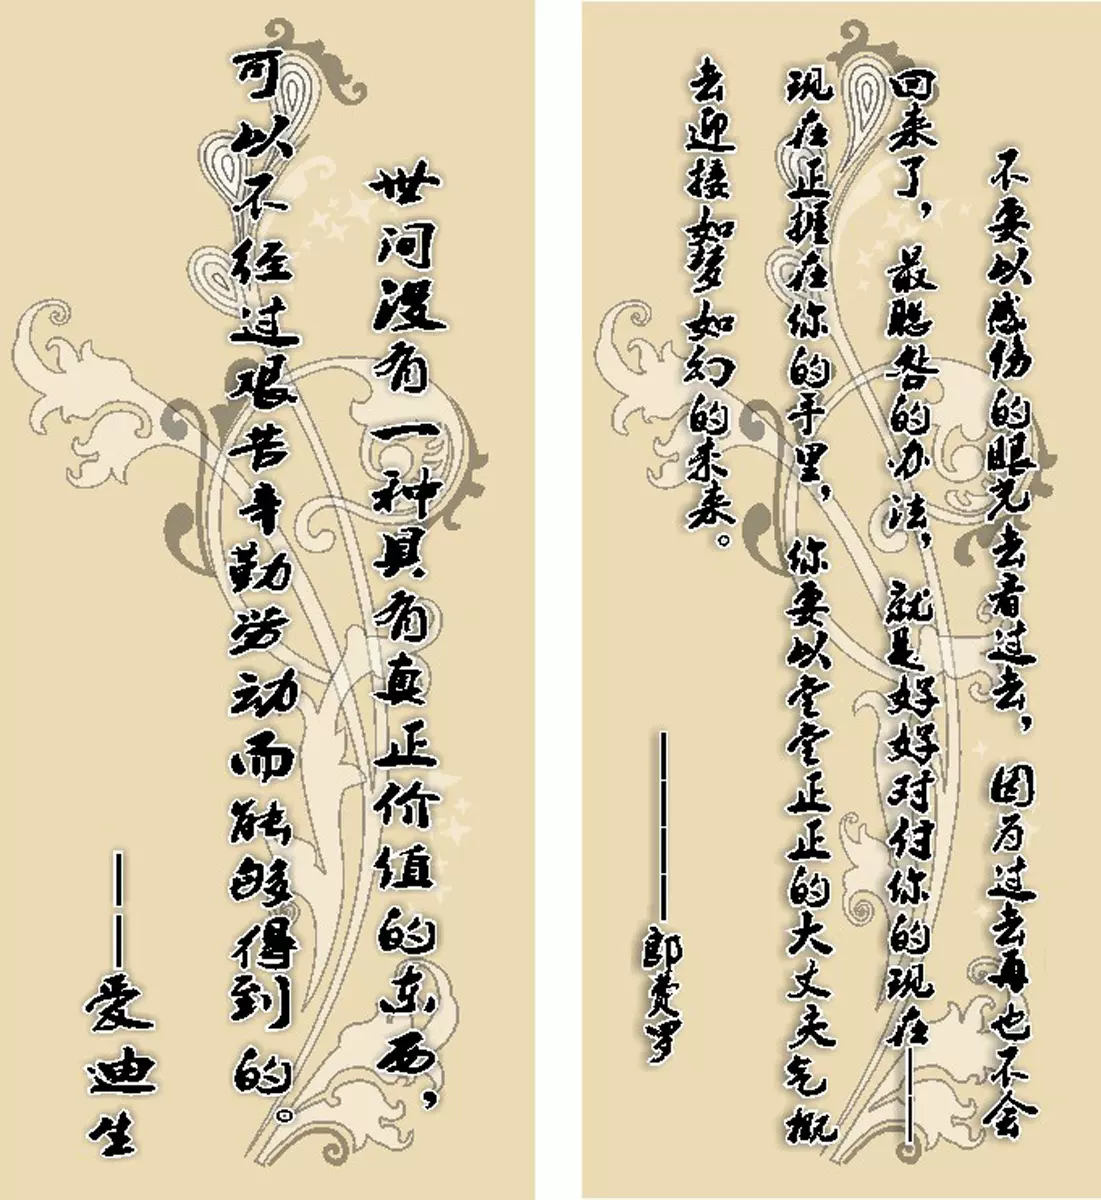 世间没有一种具有真正价值的东西，
可以不经过艰苦辛勤劳动而能够得到的。
——爱迪生
不要以感伤的眼光去看过去，因为过去再也不会
回来了，最聪咎的办法，就是好好对付你的现在——
现在正握在你的手里，你要以堂堂正正的大丈夫气概
去迎接如梦如幻的未来。
————郎费罗